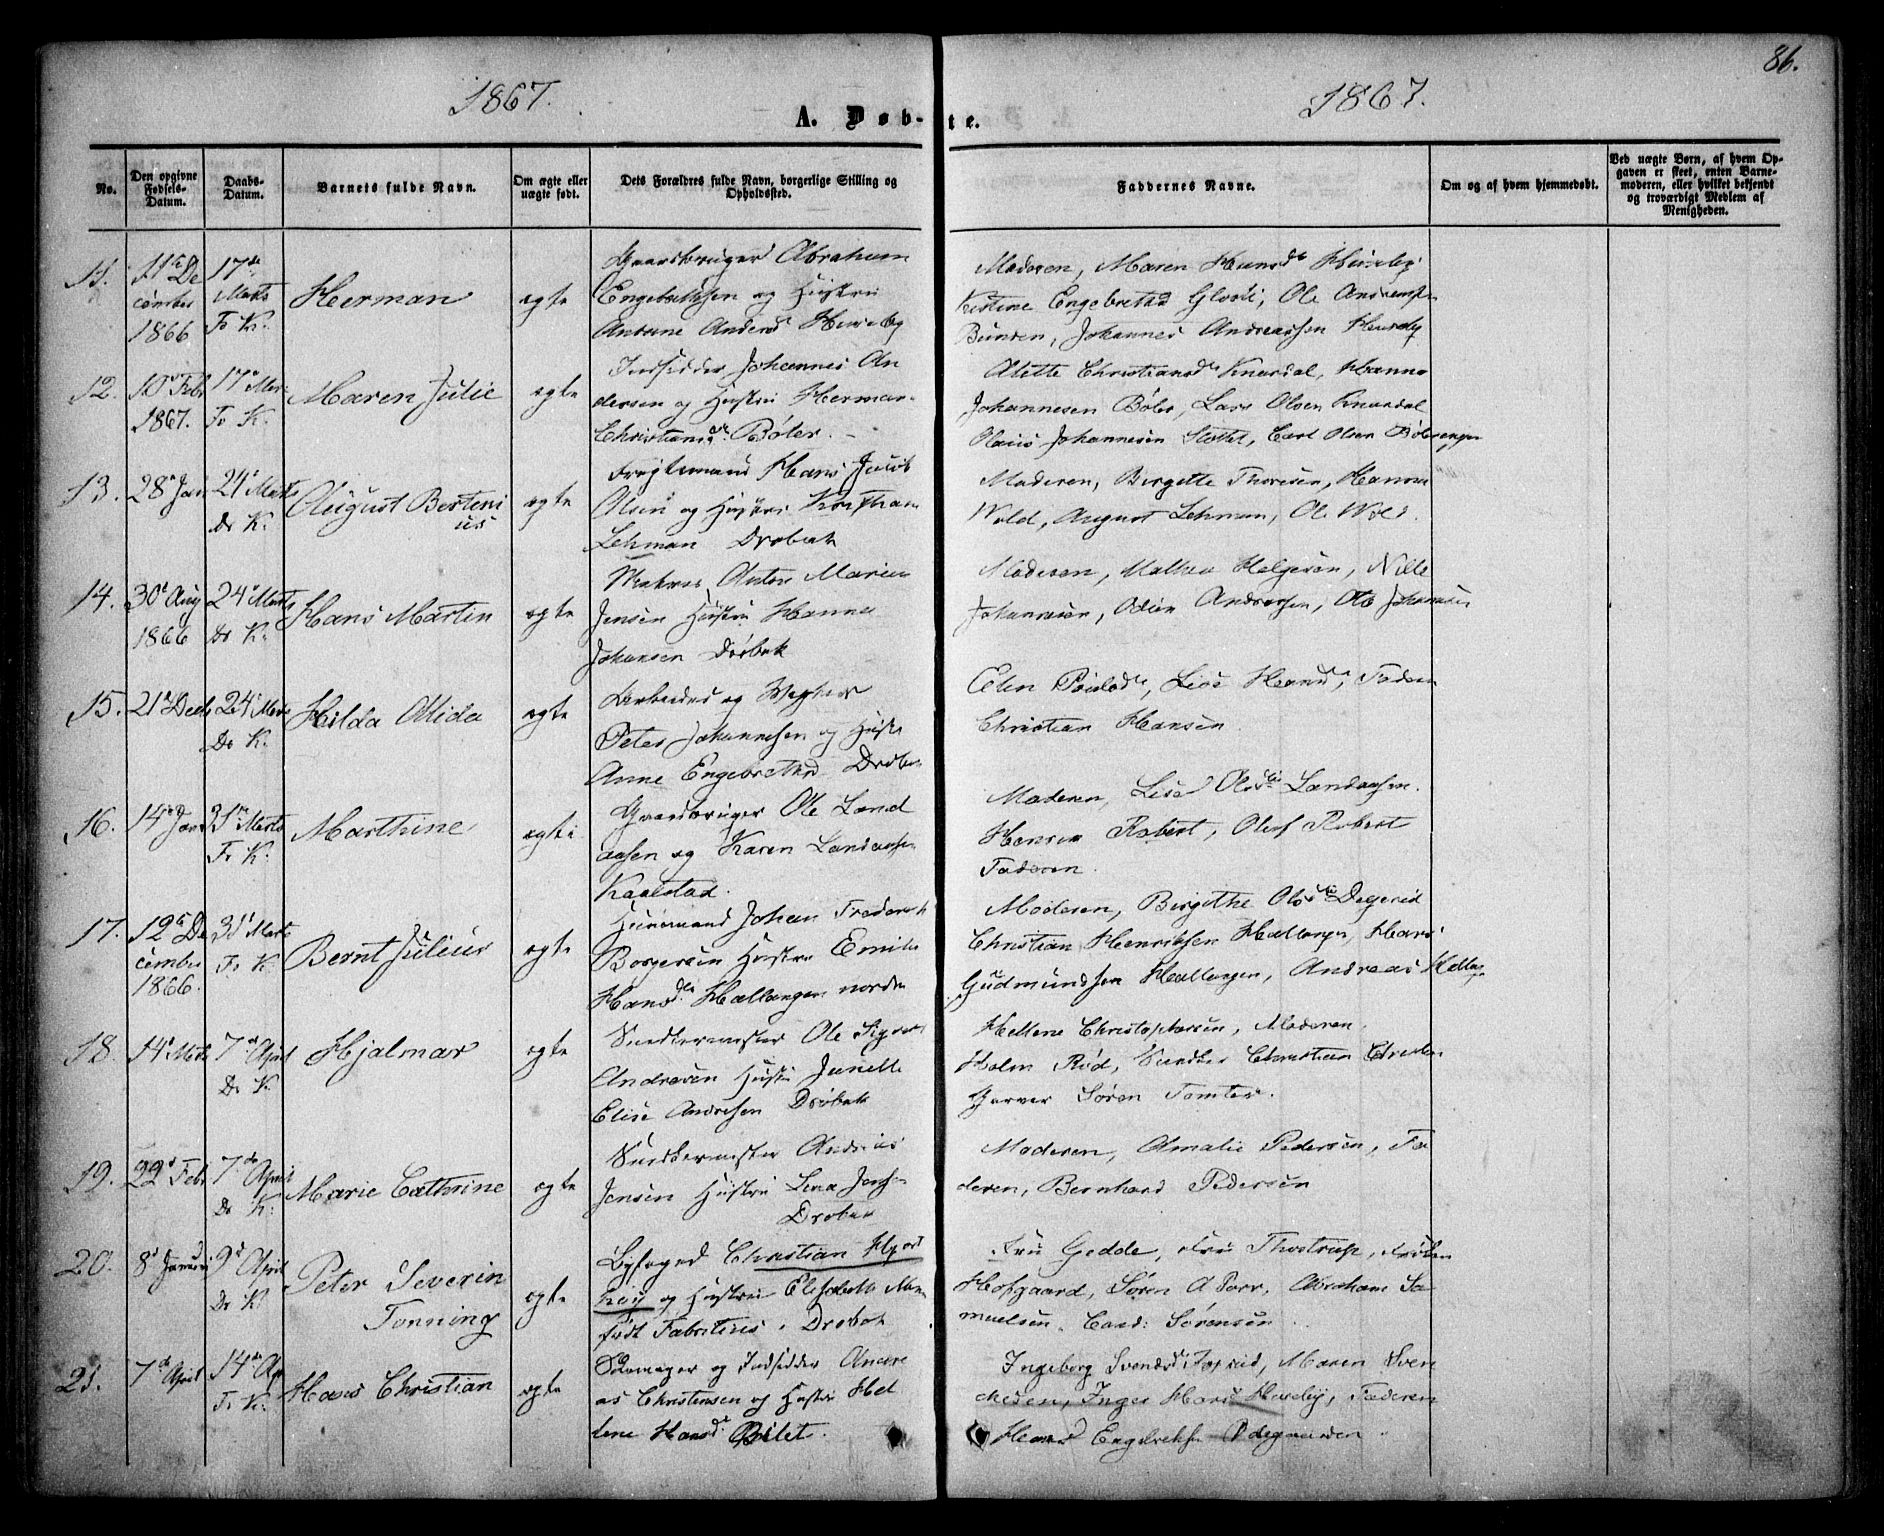 86.
1867.
1867.
A. Døb-
te.
No.
Den opgivne
Fødsels-
Datum.
Daabs-
Datum.
Barnets fulde Navn.
Om ægte eller
uægte født.
Dets Forældres fulde Navn, borgerlige Stilling og
Opholdssted.
Faddernes Navne.
Om og af hvem hjemmedøbt.
Ved uægte Børn, af hvem Op-
gaven er skeet, enten Barne-
moderen, eller hvilket bekjendt
og troværdigt Medlem af
Menigheden.
11.
11te De
cember
1866
17de
Marts
Fr K.
Herman
ægte
Gaardbruger Abraham
Engebrethsen og Hustru
Antone Andersd Huseby
Moderen, Maren Hansdtr Huseby
Engebretsd Ole Andersen
Johannes Andreassen Huseby
12.
10de Febr
1867.
17de Mar
Fr K.
Maren Julie
ægte
Indsidder Johannes An
dersen og Hustru
Christiansdtr Bøler.
Alette Christiansdtr Knardal, Hanna
Johannesen Bøler, Lars Olsen Knardal
Olaus Johannesen Carl Olsen
13.
28de Jan
24de Marts
Dr K.
August Berteni
us
ægte
Fragtemand Hans Jacob
Olsen og Hustru
Lehman Drøbak
Moderen, Birgitte Thoresen, Hanna
Wold, August Lehman, Ole Wold.
14.
30de Aug
1866
24de Marts
Dr K.
Hans Martin
ægte
Matros Anton Marius
Jensen Hustru Hanna
Johansen Drøbak
Moderen, Mathea Helgesen, Nille
Johannesen, Odin Andersen, Ole Johansen
15.
21de Decb
24de Marts
Dr K.
Hilda Alida
ægte
Arbeider og
Peter Johannesen og Hustr
Anne Engebretsd Drøbak
Elen Lise Hansdtr, Faderen
Christian Hansen
16.
14de Jan
31te Marts
Fr K.
Marthine
ægte
Gaardbruger Ole Land
aasen og Karen Landaasen
Kaalstad.
Moderen, Lise Olsdtr Landaasen.
Robert, Oluf Robert
Faderen.
17.
12te De
cember
1866.
31te Marts
Fr K.
Bernt Julius
ægte
Huusmand Johan Frederik
Borgersen Hustru Emilie
Hansdtr Hallangen nordre
Moderen, Birgithe Olsdtr Degerud
Christian Henriksen Hallangen, Hans
Gudmundsen Hallangen, Andreas Hallang
18.
14de Marts
7de April
Dr K.
Hjalmar
ægte
Snedkermester Ole
Andresen Hustru Janette
Elise Andresen Drøbak
Hellene Christophersen, Moderen.
Holm Rød, Snedker Christian
Garver Søren Tomter.
19.
22de Febr
7de April
Dr K.
Marie Cathrine
ægte
Snedkermester Andreas
Jensen Hustru Lena Jens
Drøbak
Moderen, Amalie Pedersen, Fa
deren, Bernhard Pedersen
20.
8de Januar
9de April
Dr K.
Peter Severin
Tonning
ægte
Byfoged Christian Hjort
høy og Hustru Elisabeth
født Fabritius. Drøbak
Fru Gedde, Fru Thostrup, Frøken
Hofgaard, Søren A Parr, Abraham Sa
muelsen. Cand: Sørensen
21.
7de April
14de Ap
Fr K.
Hans Christian
ægte
Skomager og Indsidder Andre
as Christensen og Hustru Hel
lene Hansdtr Bilet.
Ingeborg Svendsd Maren Sven
Inger Hansd Huseby, Faderen
Hans Engebretsen Ødegaarden